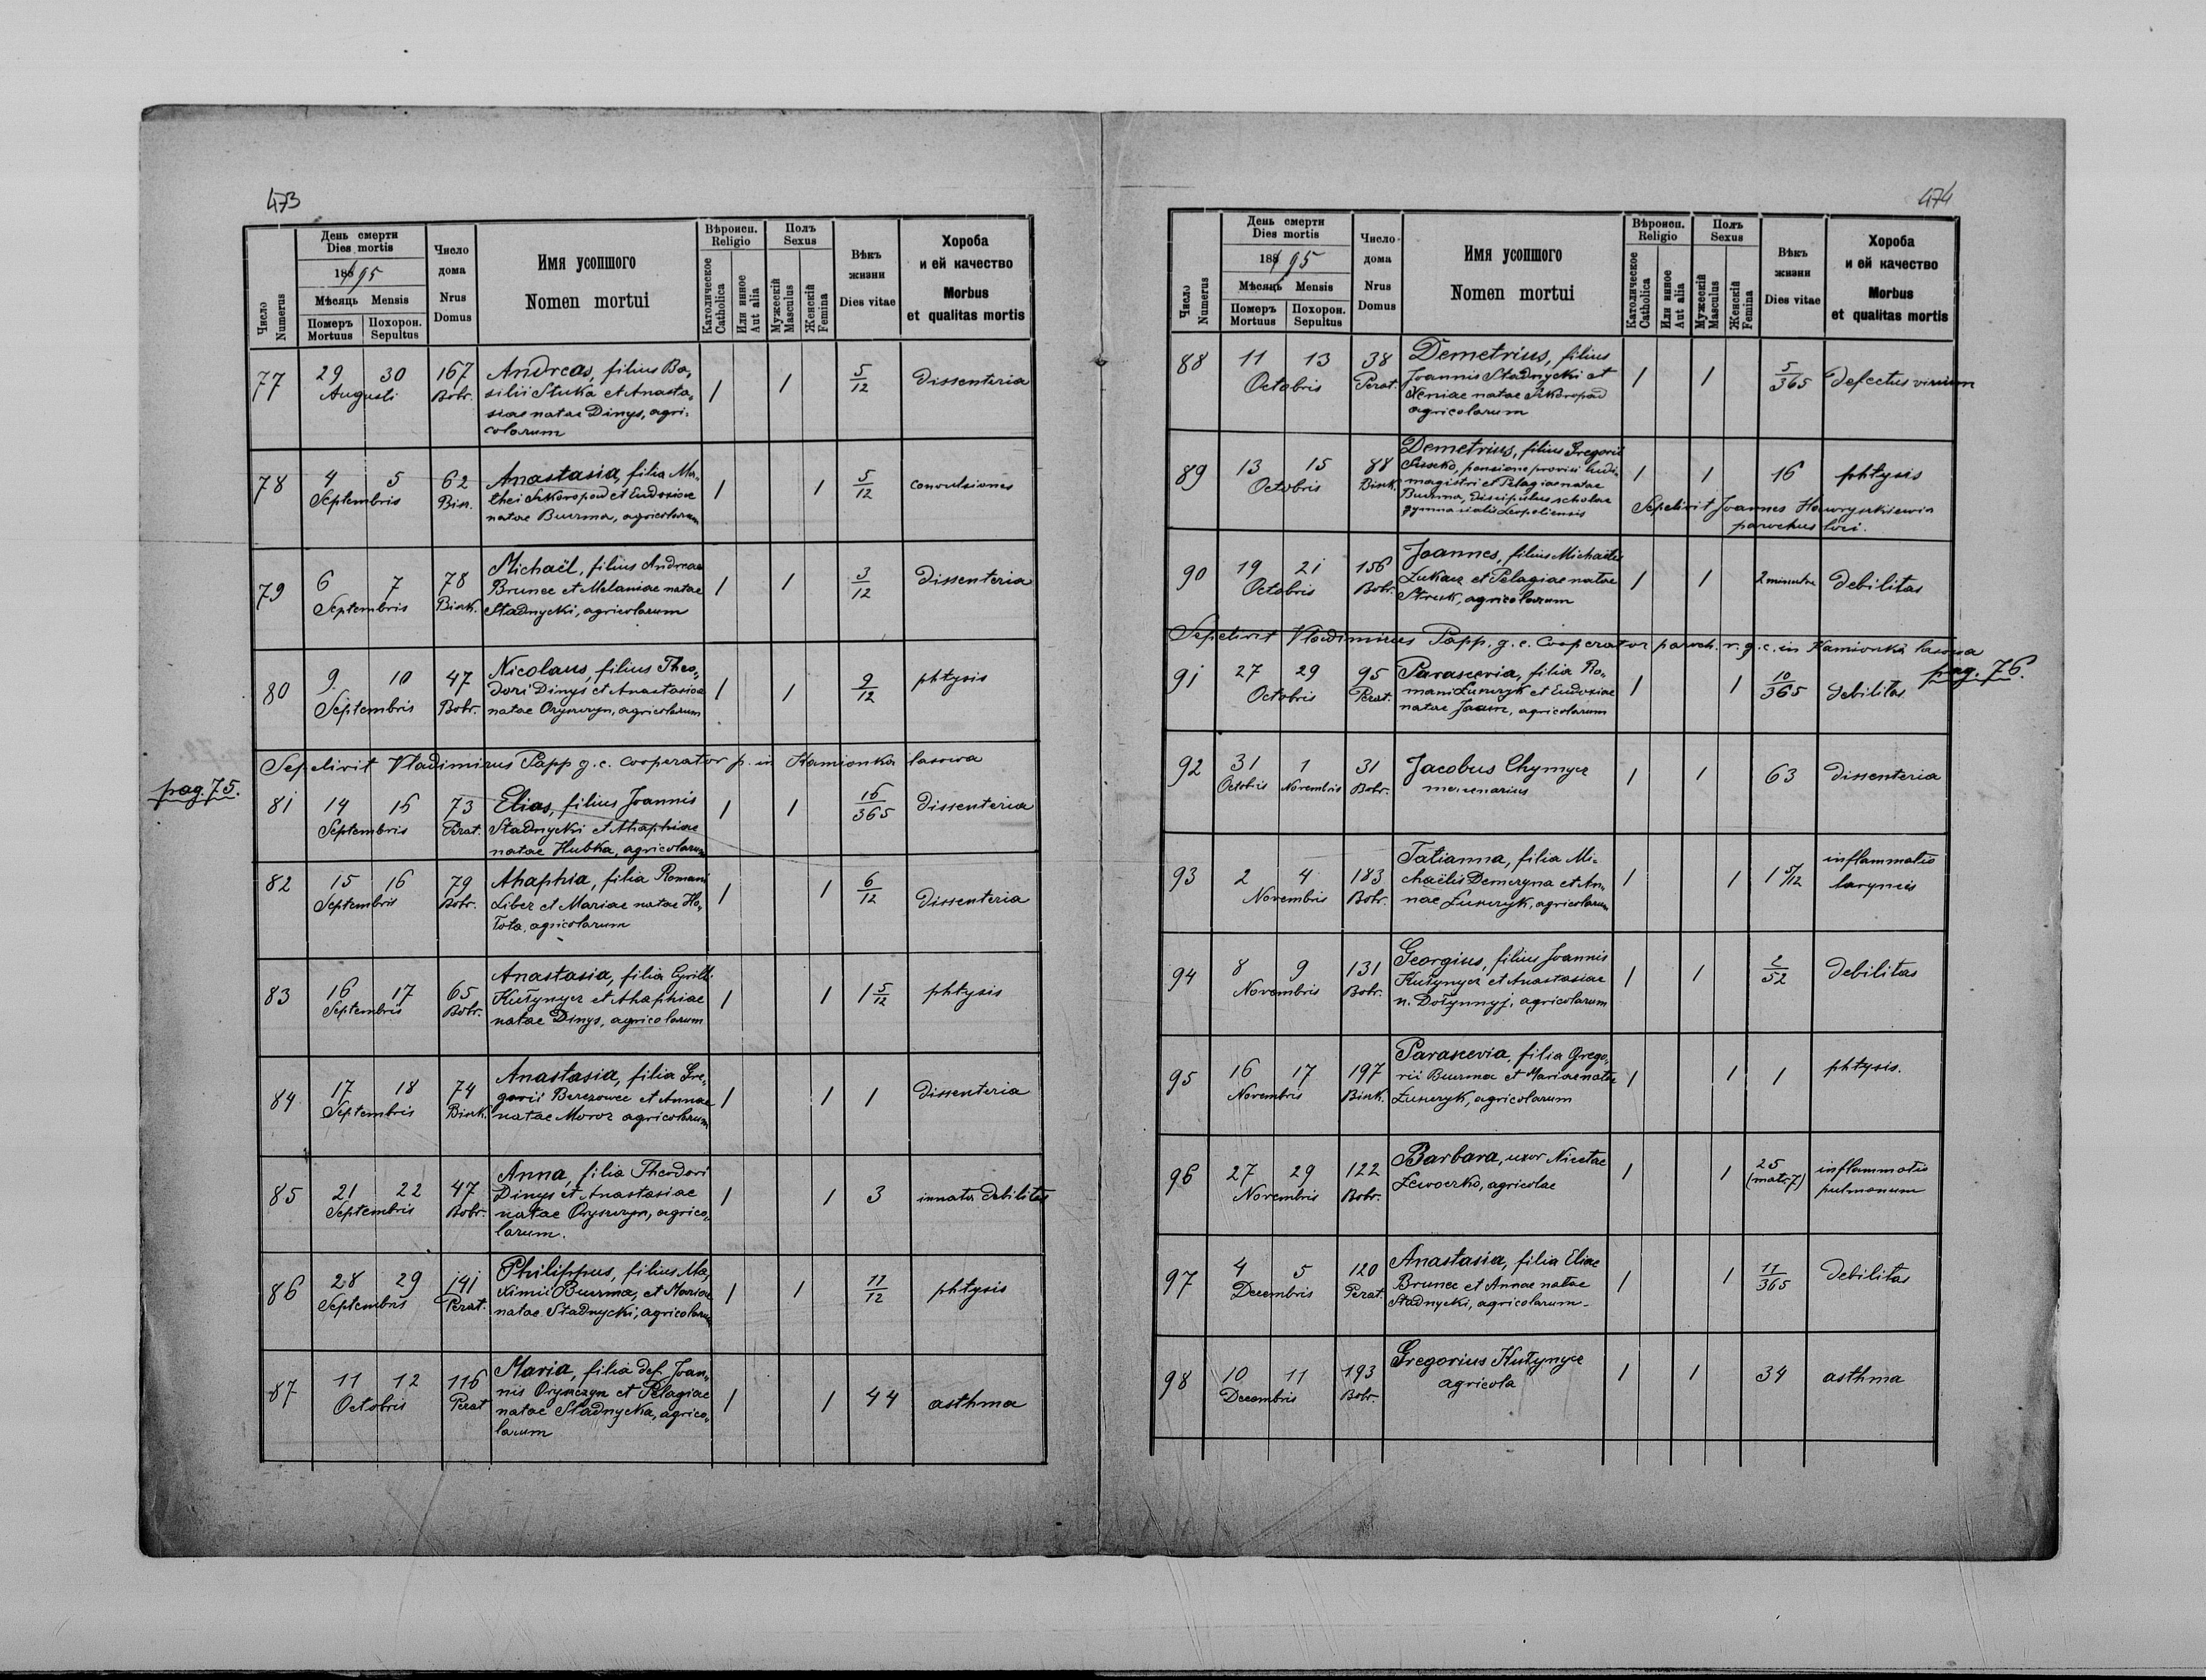 473
Число
Numerus
День смерти
Dies mortis
1895
Мѣсяць Mensis
Померъ Похорон.
Mortuus Sepultus
Число
дома
Nrus
Domus
Имя усопшого
Nomen mortui
Вѣроисп.
Religio
Католическое
Catholica
Или инное
Aut alia
Полъ
Sexus
Мужескій
Masculus
Женскій
Femina
Вѣкъ
жизни
Dies vitae
Хороба
и ей качество
Morbus
et qualitas mortis
77 29 30 Augusti 167 Bobr. Andreas, filius Ba-
silii Stuka et Anasta-
siae natae Dinys, agri-
colarum
1 1 5/12 dissenteria
78 4 5 Septembris 62 Anastasia, filia Ma-
thei Szkoropad et Eudoxiae
natae Buurma, agricolarum
1 1 5/12 convulsiones
79 6 7 Septembris 78 Bisk. Michaël, filius Andreae
Brunec et Melaniae natae
Stadnycki, agricolarum
1 1 3/12 dissenteria
80 9 10 Septembris 47 Bobr. Nicolaus, filius Theo-
dori Dinys et Anastasiae
natae Oryszczyn, agricolarum
1 1 9/12 phtysis
Sepelivit Vladimirus Papp g. c. cooperator p. in Kamionka lasowa
pag. 75.
81 14 15 Septembris 73 Perat. Elias, filius Joannis
Stadnycki et Ahaphiae
natae Hubka, agricolarum
1 1 15/365 dissenteria
82 15 16 Septembris 79 Bobr. Ahaphia, filia Romani
Liber et Mariae natae Ho-
łota, agricolarum
1 1 6/12 dissenteria
83 16 17 Septembris 65 Bobr. Anastasia, filia Cyrilli
Kułynycz et Ahaphiae
natae Dinys, agricolarum
1 1 1 5/12 phtysis
84 17 18 Septembris 74 Bisk. Anastasia, filia Gre-
gorii Berezowec et Annae
natae Moroz agricolarum
1 1 1 dissenteria
85 21 22 Septembris 47 Bobr. Anna, filia Theodori
Dinys et Anastasiae
natae Oryszczyn, agrico-
larum.
1 1 3 innata debilitas
86 28 29 Septembris 141 Perat. Philippus, filius Ma-
ximii Buurma, et Mariae
natae Stadnycki, agricolarum
1 1 11/12 phtysis
87 11 12 Octobris 116 Perat Maria, filia def. Joan-
nis Oryszczyn et Pelagiae
natae Stadnycka, agrico-
larum
1 1 44 asthma
474
Число
Numerus
День смерти
Dies mortis
1895
Мѣсяць Mensis
Померъ Похорон.
Mortuus Sepultus
Число
дома
Nrus
Domus
Имя усопшого
Nomen mortui
Вѣроисп.
Religio
Католическое
Catholica
Или инное
Aut alia
Полъ
Sexus
Мужескій
Masculus
Женскій
Femina
Вѣкъ
жизни
Dies vitae
Хороба
и ей качество
Morbus
et qualitas mortis
88 11 13 Octobris 38 Perat. Demetrius, filius
Joannis Stadnycki et
Xeniae natae Szkoropad
agricolarum
1 1 5/365 defectus virium
89 13 15 Octobris 88 Bisk. Demetrius, filius Gregorii
pensione provisi ludi-
magistri et Pelagiae natae
Buurma, discipulus scholae
gymnasialis Leopoliensis
1 1 16 phtysis
Sepelivit Joannes Hawryszkiewicz
parochus loci.
90 19 21 Octobris 156 Bobr. Joannes, filius Michaelis
Łukacz et Pelagiae natae
Struk, agricolarum
1 1 2 minuta debilitas
Sepelivit Vladimirus Papp. g. c. cooperator paroch. r. g. c. in Kamionka lasowa
pag. 76.
91 27 29 Octobris 95 Perat. Parascevia, filia Ro-
mani Łuszczyk et Eudoxiae
natae agricolarum
1 1 10/365 debilitas
92 31 Octobris 1 Novembris 31 Bobr. Jacobus Chymycz
mercenarius
1 1 63 dissenteria
93 2 4 Novembris 183 Bobr. Tatianna, filia Mi-
chaëlis Demczyna et An-
nae Łuszczyk, agricolarum
1 1 1 5/12 inflammatio
laryncis
94 8 9 Novembris 131 Bobr. Georgius, filius Joannis
Kułynycz et Anastasiae
n. Dołynnyj, agricolarum
1 1 2/52 debilitas
95 16 17 Novembris 197 Bisk. Parascevia, filia Grego-
rii Buurma et Mariae natae
Łuszczyk, agricolarum
1 1 1 phtysis.
96 27 29 Novembris 122 Bobr. Barbara, uxor Nicetae
Lewoczko, agricolae
1 1 25
(matr. 7) inflammatio
pulmonum
97 4 5 Decembris 120 Perat. Anastasia, filia Eliae
Brunec et Annae natae
Stadnycki, agricolarum
1 1 11/365 debilitas
98 10 11 Decembris 193 Bobr. Gregorius Kułynycz
agricola
1 1 34 asthma